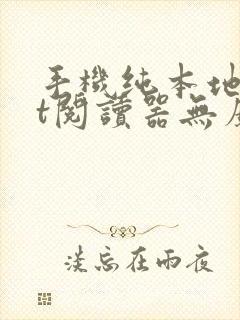 手機純本地
t閱讀器無
淡忘在雨夜